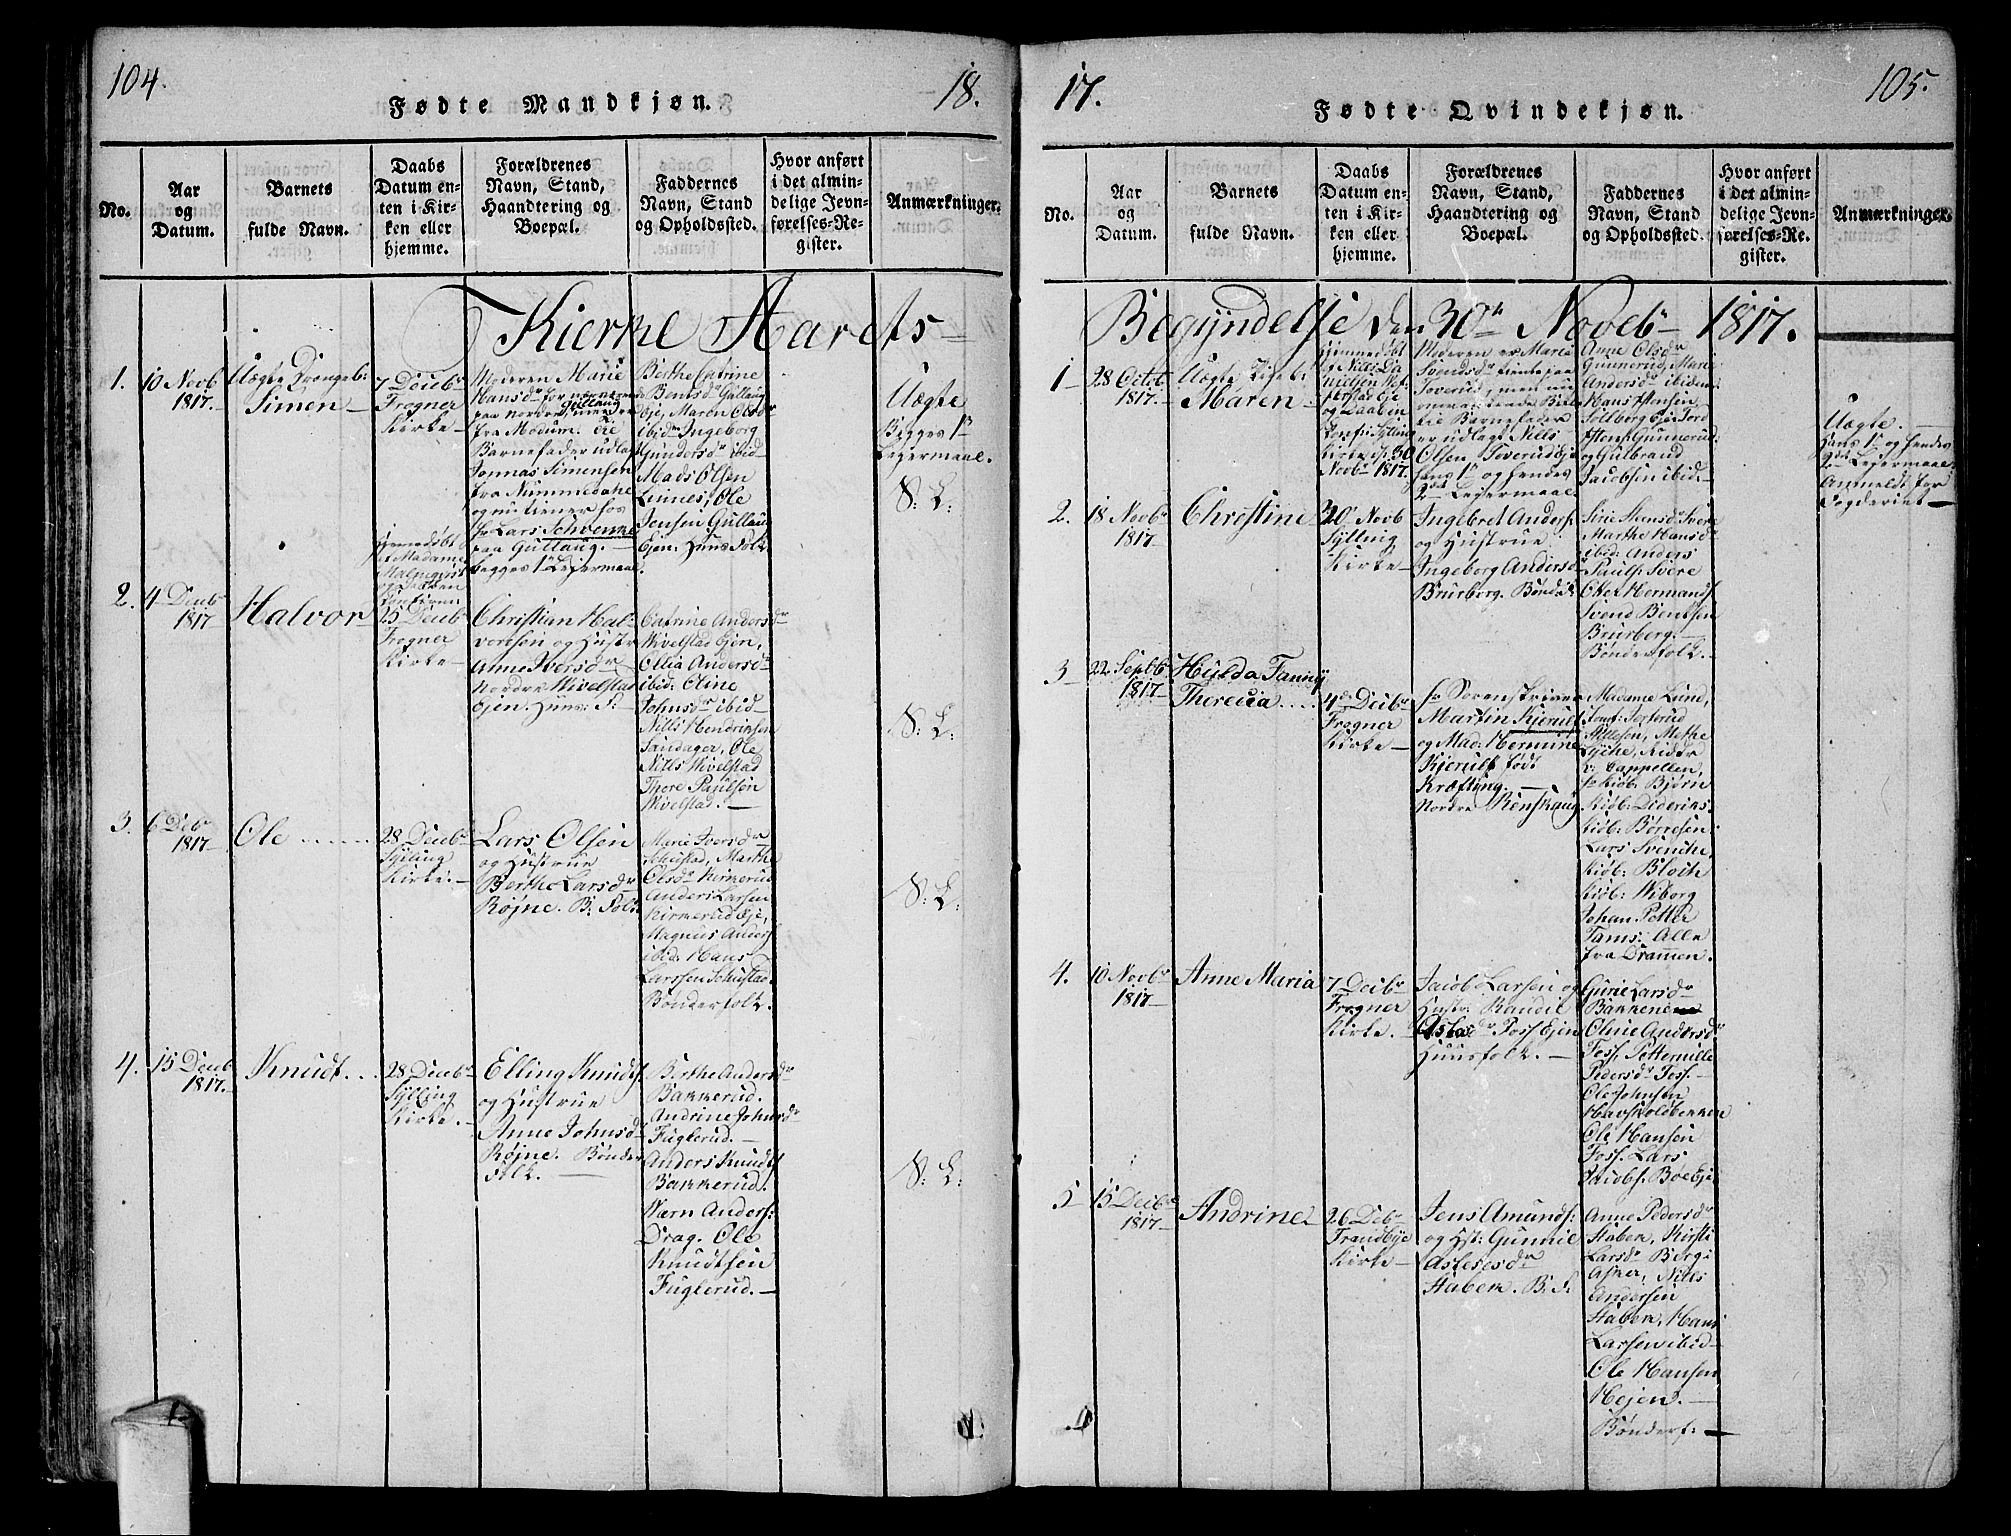 104.
Fødte Mandkjøn.
18.
No.
Aar
og
Datum.
Barnets
fulde Navn.
Daabs
Datum en-
ten i Kir-
ken eller
hjemme.
Forældrenes
Navn, Stand,
Haandtering og
Boepæl.
Faddernes
Navn, Stand
og Opholdssted.
Hvor anført
i det almin-
delige Jevn-
førelses-Re-
gister.
Anmærkninger.
Kierke Aarets
1.
10 Novb
1817.
Uægte Drængeb:
Simen
7 Decbr
Frogner
Kirke
Moderen Marie
Hansdr for nærværende
paa nordre Gullaug, men er
fra Modum. Til
Barnefader udlagt
Jonnas Simensen
fra Nummedahl
og nu tiener hos
Hr Lars Schvenke
paa Gullaug.
begges 1te Leiermaal.
Berthe Catrine
Bentsdr Gullaug
Eje, Maren Olsdr
ibid: Ingeborg
Gundersdr ibid
Mads Olsen
Linnes, Ole
Jensen Gullaug
Ejen. Huus Folk.
Uægte
Begges 1te
Leiermaal.
S: L:
2.
4 Decbr
1817
Halvor
Hjemmedøbt
af Madame
Malmqvist
25 Decbr
Frogner
Kirke
Christian Hal-
vorsen og Hustr
Anne Iversdr
Nordre Wivelstad
Ejen. Huus: F:
Catrine Andersdr
Wivelstad Ejen,
Ollia Andersdr
ibid: Oline
Johnsdr ibid
Nills Hendriksen
Sandager, Ole
Nills Wivelstad
Thore Paulsen
Wivelstad.
S: L:
3.
6 Decbr
1817
Ole
28 Decbr
Sylling
Kirke.
Lars Olsen
og Hustrue
Berthe Larsdr
Røjne. B: Folk
Marie Iversdr
Schustad, Marthe
Olsdr Kirkerud
Anders Larsen
Kirkerud Eje,
Magnus Anders
ibid: Hans
Larssen Schustad.
Bønder folk.
S: L:
4.
15 Decb
1817.
Knudt
28 Decbr
Sylling
Kirke.
Elling Knudts
og Hustrue
Anne Johnsdr
Røjne. Bønder
folk.
Berthe Andersdr
Bakkerud.
Andrine Johnsdr
Fuglerud.
Anders Knudts
Bakkerud.
Wærn Anders:
Drag. Ole
Knudtsen
Fuglerud.
S: L:
17.
Fødte Qvindekjøn.
105.
No.
Aar
og
Datum.
Barnets
fulde Navn.
Daabs
Datum en-
ten i Kir-
ken eller
hjemme.
Forældrenes
Navn, Stand,
Haandtering og
Boepæl.
Faddernes
Navn, Stand
og Opholdssted.
Hvor anført
i det almin-
delige Jevn-
førelses-Re-
gister.
Anmærkninger.
Begyndelse den 30te Novebr 1817.
1
28 Octob
1817.
Uægte Pigeb:
Maren
Hjemmedøbt
af Nills Da
nielsen
og Daaben
Sylling
Kirke d. 30
Novbr 1817.
Moderen er Marie
Svendsdr tienende paa
Toverud, men nu
Til Barnefader
er udlagt Nills
Olsen Toverud Eje
hans 1te og hendes
2det Leiermaal
Anne Olsdr
Gunnerud, Marie
Andersdr ibidem
Hans Hansen
Solberg Eje, Tord
Gunnerud
og Gulbrand
Jacobsen ibid.
Uægte.
Hans 1te og hendes
2det Leiermaal.
Anmeldt for
Fogderiet
2.
18 Novbr
1817
Christine
30 Novb
Sylling
Kirke
Ingebret Anders:
og Hustrue
Ingeborg Andersdr
Brurberg. Bønde:
Sirie Hansdr Svere
Marthe Hansdr
ibid: Anders
Pauls: Svere
Eker Hermands:
Svend Bentsen
Brurberg.
Bønderfolk.
3
22 Septb
1817
Hylda Fanny
Therecia
4de Decbr
Frogner
Kirke
Hr Sorenskriver
Martin Kjerulf
og Mad: Hermine
Kjerulf født
Kræfting.
Nordre Renskaug
Madame Lund,
Jomf: Serterud
Allesen, Methe
Lyche, Ridder
v: Cappellen,
Hr Kiøb: Bjørn
Kiøb: Dideriks.
Kiøb: Børresen
Lars Svenche,
Kiøb: Bloch
Kiøb: Wiborg
Johan Petter
Tams: Alle
fra Drammen.
4.
10 Novbr
1817
Anne Maria
7 Decbr
Frogner
Kirke.
Jacob Larsen og
Hustr: Randil
Aslesdr Foss Ejen
Huusfolk.
Gurie Larsdr
Bakkene
Oline Andersdr
Foss, Petternille
Pedersdr Foss.
Ole Johnsen
Havskolbekken
Ole Hansen
Foss. Lars
Jacobs. Bøe Eje
5
15 Decbr
1817
Andrine
26 Decbr
Frandbye
Kirke
Jens Amunds:
og Hst: Gunnil
Aslesesdr
Staben. B: F:
Anne Pedersdr
Staben, Kirsti
Larsdr Berg i
Asker, Nills
Andersen
Staben, Hans
Larsen ibid
Ole Hansen
Hejen.
Bønderf: